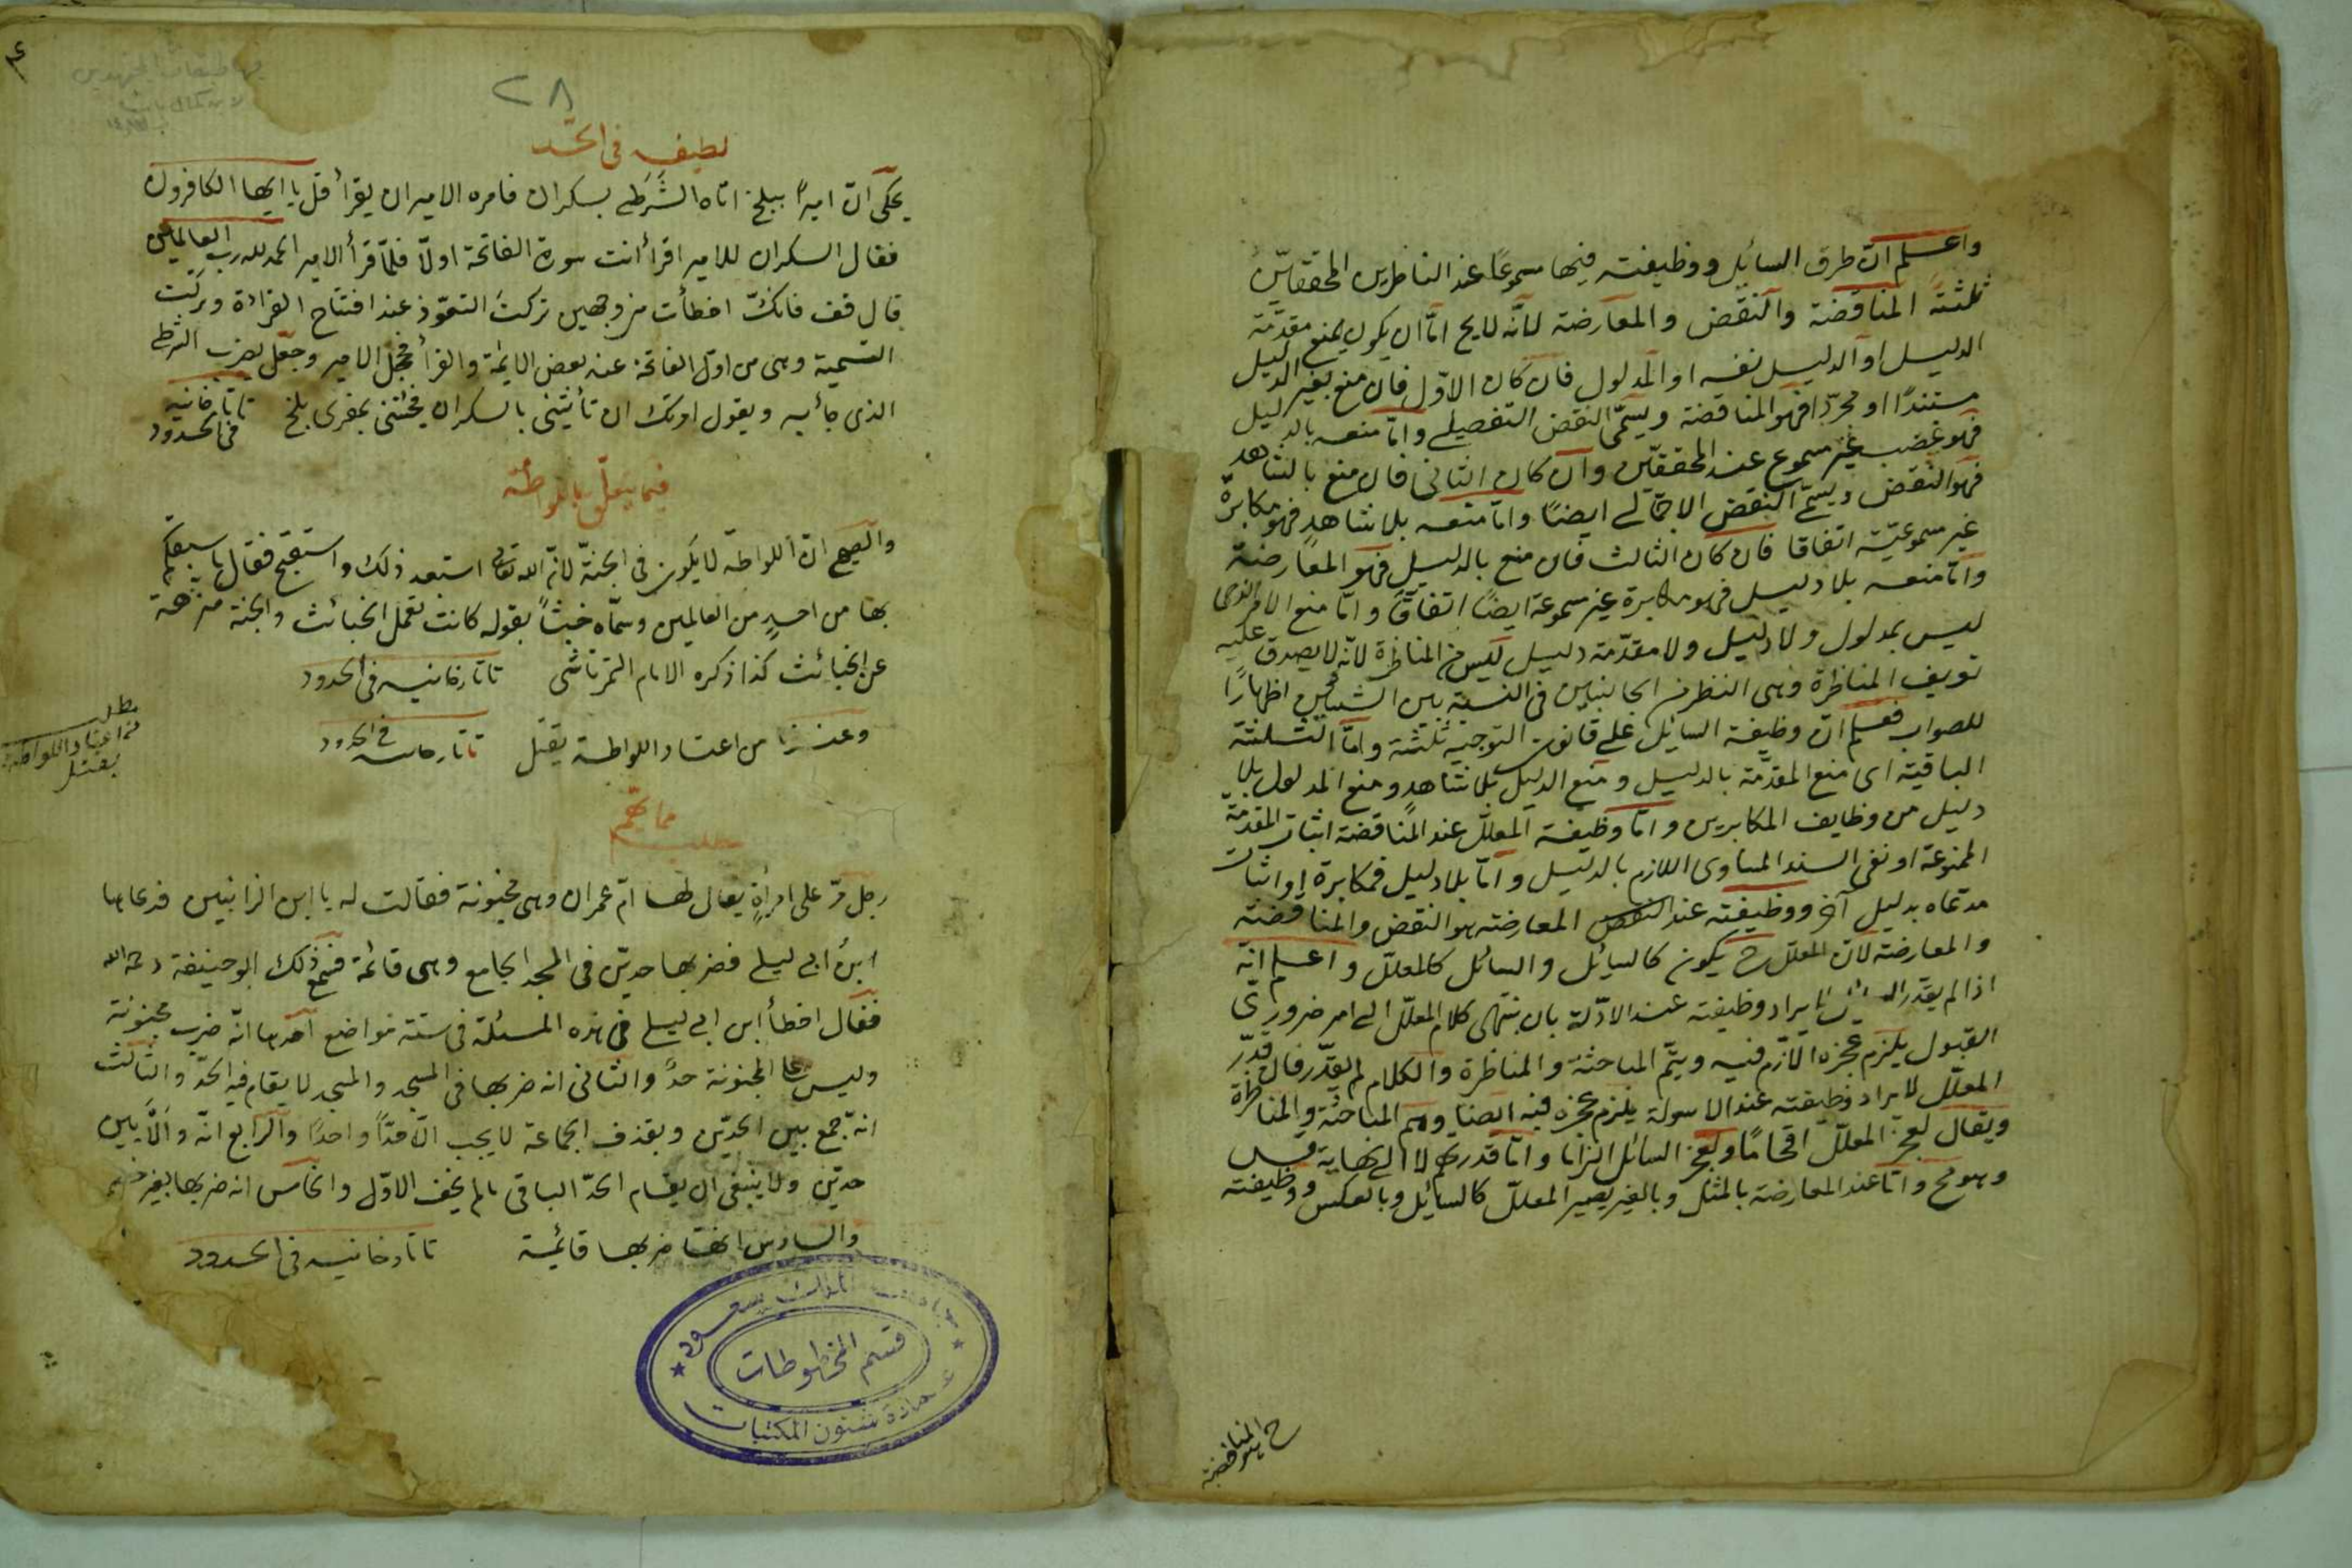 واعلم ان طرق السائل ووظيفته فيها سموعًا عند الناظرين المحققين
ثلثة المناقضة والنقض والمعارضة لانه لا يخ امّا ان يكون يمنع مقدّمة
الدليل او الدليل نفسه او المدلول فان كان الاوّل فان منع بغير الدليل
مستندًا او مجرّدا فهو المناقضة ويسمّى النقض التفصيلى وامّا منعه بالدليل
فهو غصب غير مسموع عند المحققين وان كان الثانى فان منع بالشاهد
فهو النقض ويسمّى النقض الاجمالى ايضًا وامّا منعه بلا شاهد فهو مكابرة
غير مسموعة اتفاقا فان كان الثالث فان منع بالدليل فهو المعارضة
وامّا منعه بلا دليل فهو مكابرة غير مسموعة ايضًا اتفاقًا وامّا منع الامر الذى
ليس بمدلول ولا دليل ولا مقدّمة دليل ليس من المناظرة لانّه لا يصدق عليه
تعريف المناظرة وهى النظر من الجانبين فى النسبة بين الشيئين اظهارًا
للصواب فعلم انّ وظيفة السائل على قانون التوجيه ثلثة وامّا الثلثة
الباقية اى منع المقدّمة بالدليل ومنع الدليل بلا شاهد ومنع المدلول بلا
دليل من وظايف المكابرين وامّا وظيفة المعلّل عند المناقضة اثبات المقدّمة
الممنوعة او نفى السند المساوى اللازم بالدليل وامّا بلا دليل فمكابرة او اثبات
مدعاه بدليل آخر ووظيفته عند النقض المعارضة هو النقض والمناقضة
والمعارضة لان المعلّل ح يكون كالسائل والسائل كالمعلّل واعلم انّه
اذا لم يقدر السائل لايراد وظيفته عند الادلّة بان ينتهى كلام المعلّل الى امر ضرورىّ
القبول يلزم عجزه الازم فيه ويتمّ المباحثة والمناظرة والكلام لم يقدّر فان قدّر
المعلّل لايراد وظيفته عند الاسولة يلزم عجزه فيه ايضا ويتم المباحثة والمناظرة
ويقال لعجز المعلّل افحامًا ولعجز السائل الزاما وامّا قدرتهم لا الى نهاية
وهو مح وامّا عند المعارضة بالمثل وبالغير يصير المعلّل كالسائل وبالعكس ووظيفته
ح هو المناقضة
٢٨
لطيفه فى الحدّ
يحكى انّ اميرًا ببلخ اتاه الشَّرَطى بسكران فامره الامير ان يقرأ قل يا ايها الكافرون
فقال السكران للامير اقرأ انت سورة الفاتحة اولًا فلمّا قرأ الامير الحمد لله رب العالمين
قال قف فانك اخطأت من وجهين تركت التعوّذ عند افتتاح القراءة وتركت
التسمية وهى من اوّل الفاتحة عند بعض الايمّة والقرأ فخجل الامير وجعل يضرب الشرطى
الذى جأ به ويقول امرتك ان تأتينى بالسكران فجئتنى بمقرى بلخ تاتارخانيه فى الحدود
فيما يتعلّق باللواطة
والصحيح انّ اللواطة لا يكون فى الجنّة لانّ الله تعالى استبعد ذلك واستقبح فقال ما سبقكم
بها من احدٍ من العالمين وسمّاه خبثًا بقوله كانت تعمل الخبائث والجنة منزّهة
عن الخبائث كذا ذكره الامام التمرتاشى تاتارخانيه فى الحدود
وعندنا من اعتاد اللواطة يقتل تاتارخانيه فى الحدود
مطلب
من اعتاد اللواطة
يقتل
مطلب مهم
رجل مرّ على امرأةٍ يقال لها امّ عمران وهى مجنونة فقالت له يا ابن الزانيين فدعاها
ابن ابى ليلى فضربها حدّين فى المسجد الجامع وهى قائمة فسمع ذلك ابو حنيفة رحمه الله
فقال اخطأ ابن ابى ليلى فى هذه المسئلة فى ستة مواضع احدها انّه ضرب مجنونة
وليس على المجنونة حدّ والثانى انه ضربها فى المسجد والمسجد لا يقام فيه الحدّ والثالث
انه جمع بين الحدّين وبقذف الجماعة لا يجب الّا حدًّا واحدًا والرابع انّه والآ بين
حدين ولا ينبغى ان يقام الحدّ الباقى ما لم يخف الاوّل والخامس انه ضربها بغير خصم
والسادس انّه ضربها قائمة تاتارخانيه فى الحدود
جامعة الملك سعود
قسم المخطوطات
عمادة شئون المكتبات